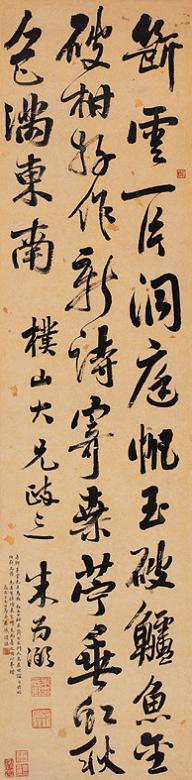 斷雲一片洞庭帆玉破鱸魚金
破柑好作新詩寄桑苧垂虹秋
色滿東南
樸山大兄政之 朱為弼